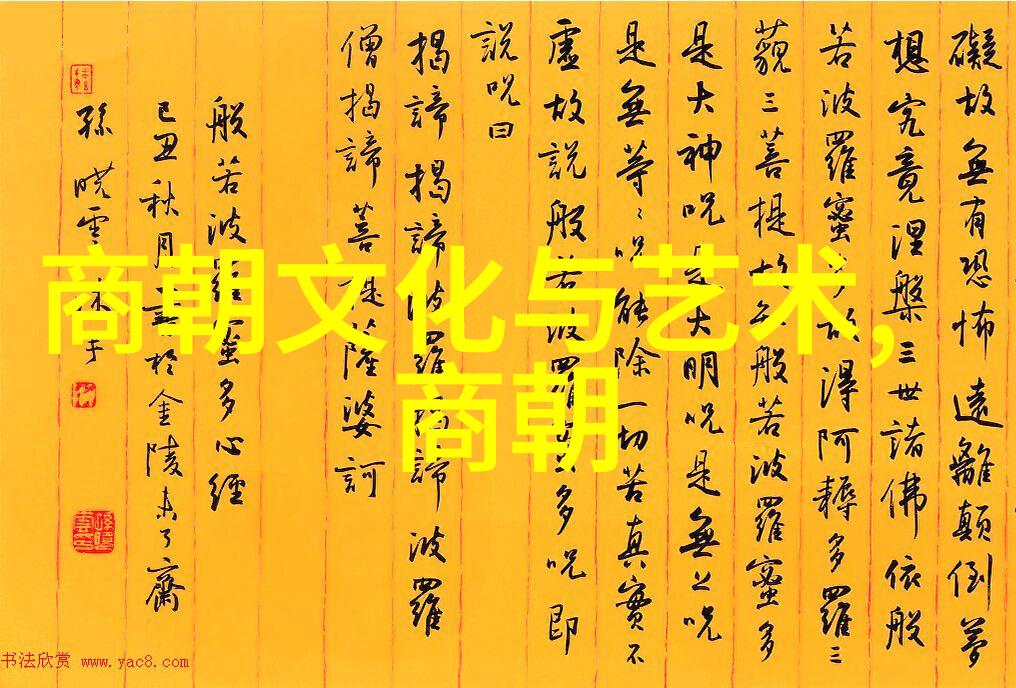 商朝文化与艺术,
商朝
礙故無有恐怖遠離顛倒夢
想究竟涅槃三世諸佛依般
若波羅蜜多故得阿耨多羅三
藐三菩提故知般若波羅蜜多
是大神呪是大明呪是無上呪
是無等〻呪能除一切苦真實不
虛故說般若波羅蜜多呪即
說呪曰
揭諦揭諦波羅揭諦波羅
僧揭諦菩提薩婆訶
般若波羅蜜多心經
己丑秋月書於金陵未了齋
孫曉雲沐手
书法欣赏 www.yac8.com